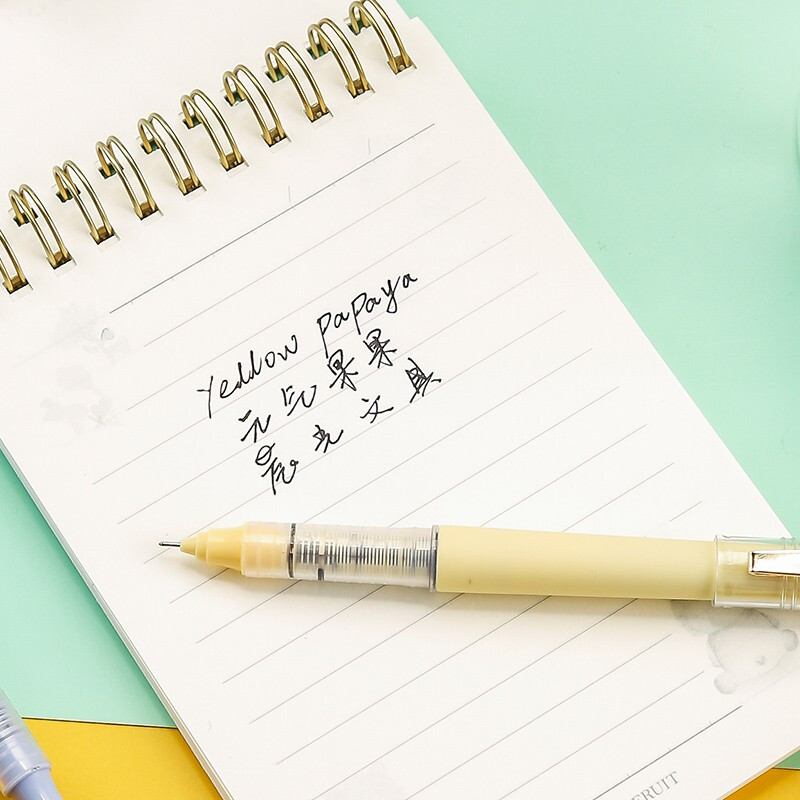 Yellow papaya
元气果果
晨光文具
FRUIT